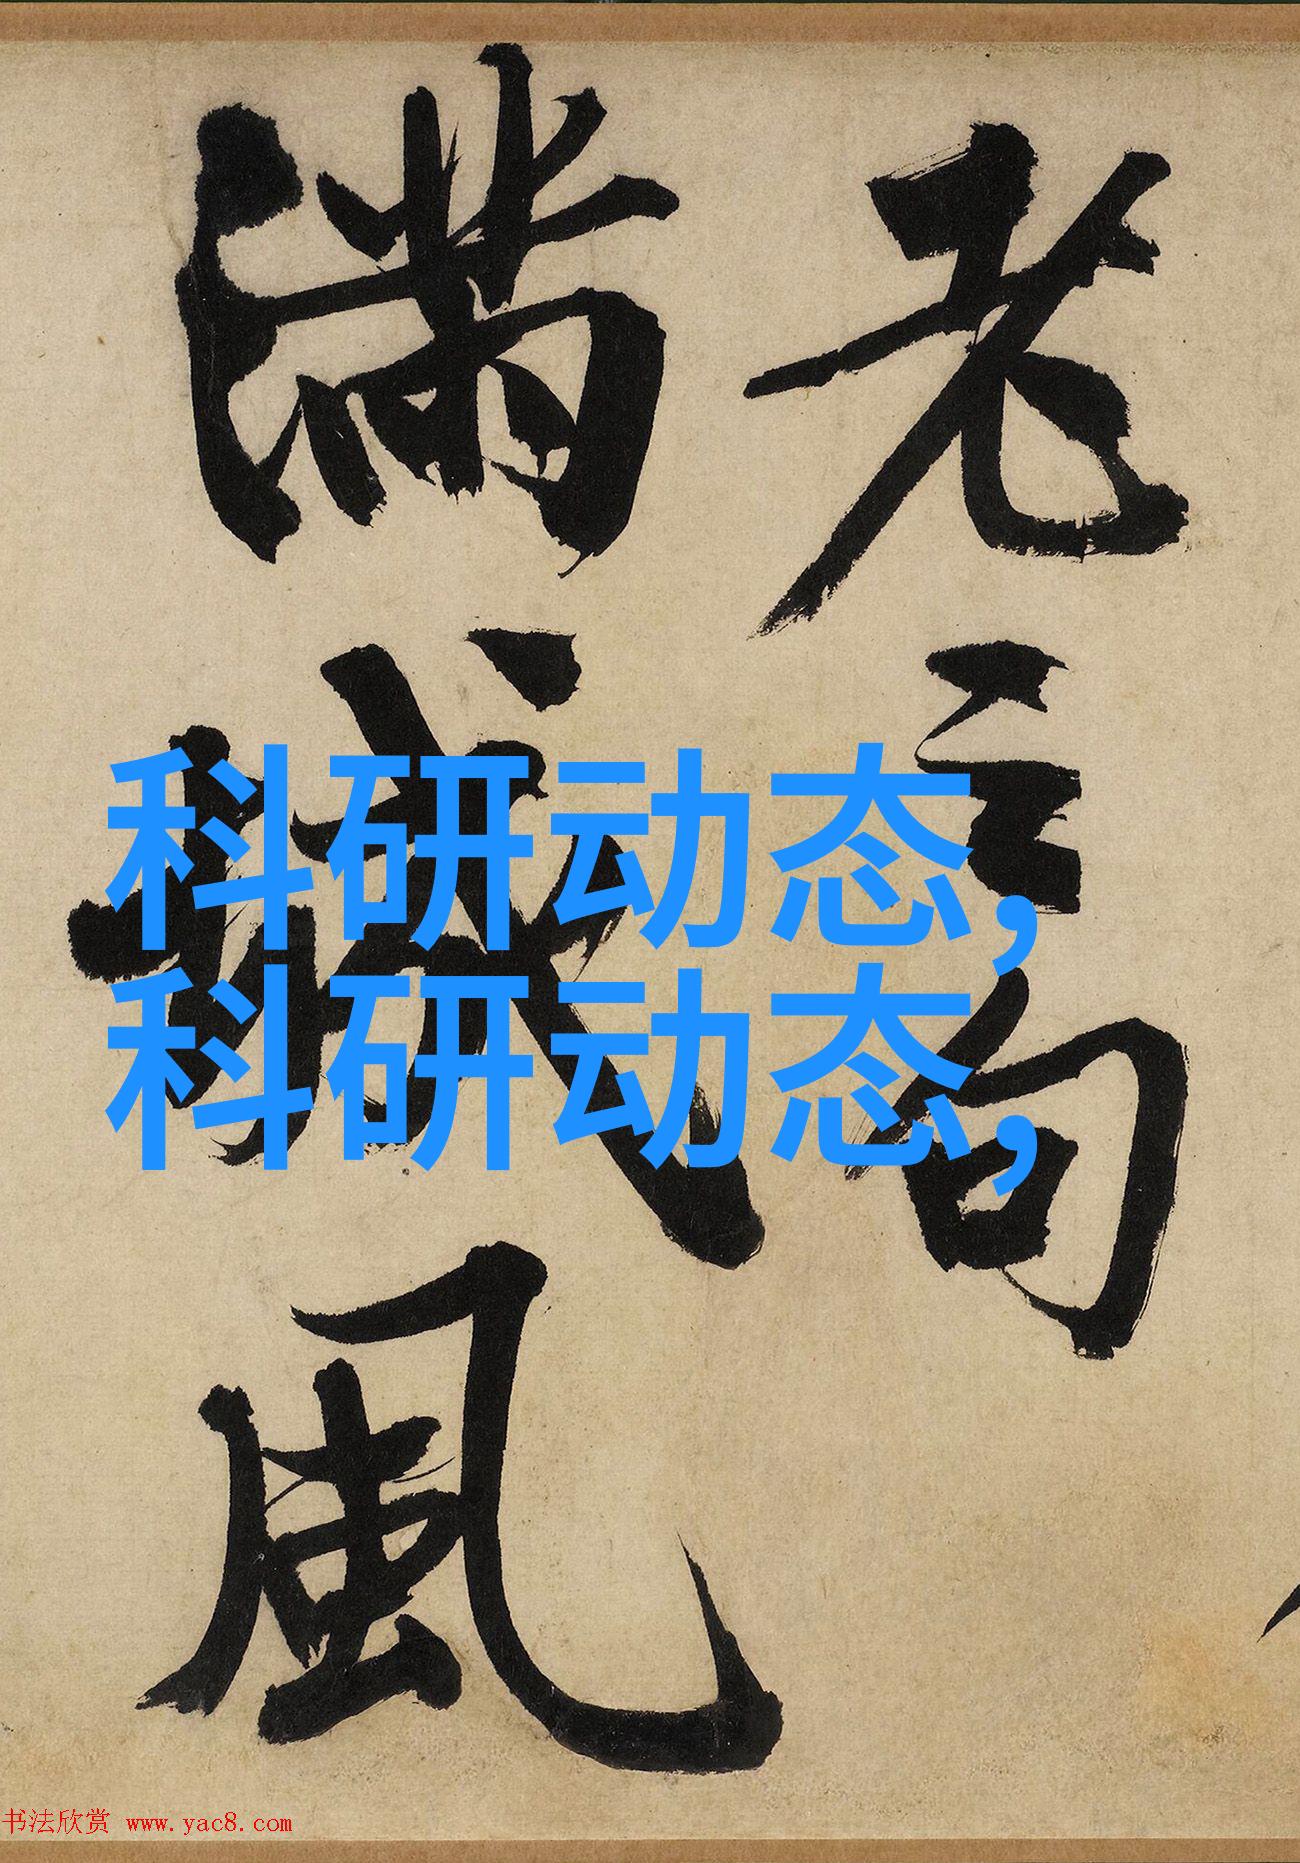 老言句
满城风
科研动态,
科研动态,
书法欣赏 www.yac8.com